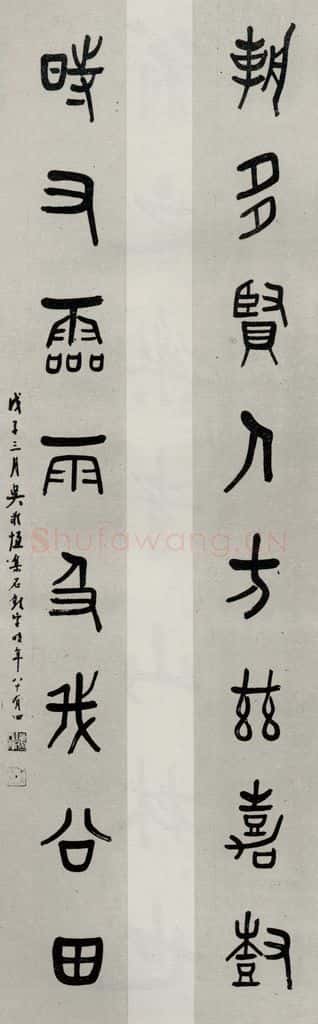 朝多賢人方茲嘉尌
時又霝雨及我公田
戊子三月吳敬恆集石鼓字時年八十有四
Shufawang.CN